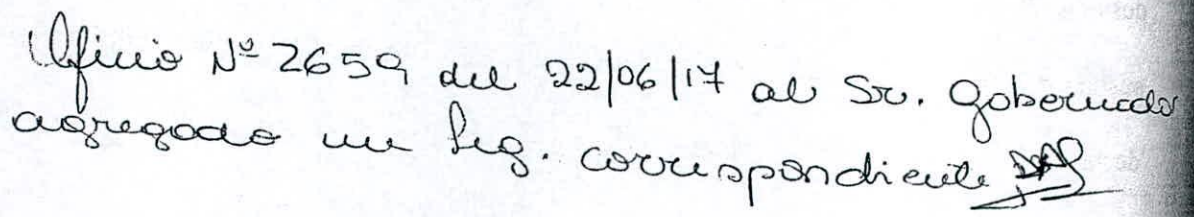 Oficio Nº 2659 del 22/06/17 al Sr. Gobernador
agregado en Leg. correspondiente